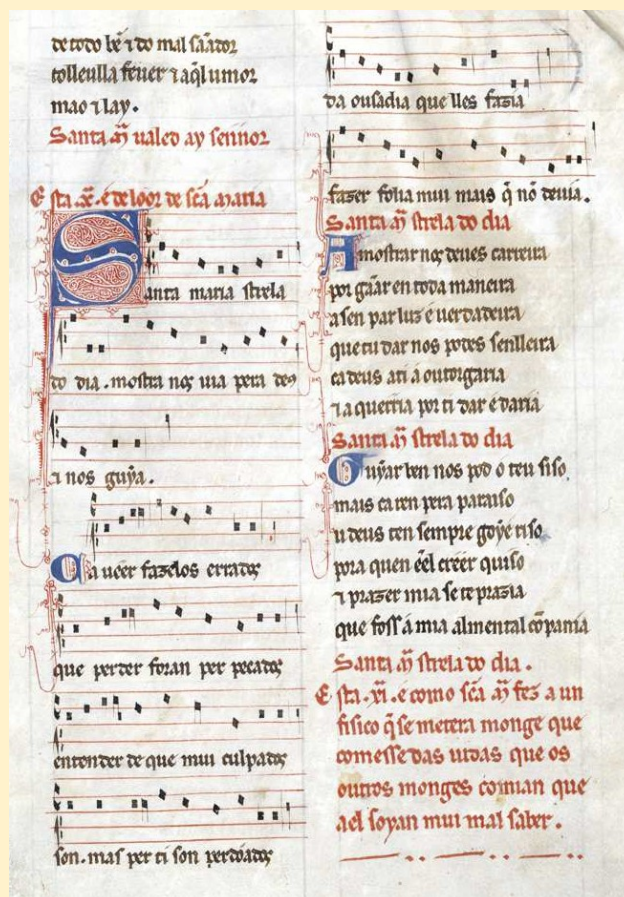 de todo bẽ ⁊ do mal sãador
tolleulla feuer ⁊ aq̃l umor
mao ⁊ lay.
Santa m̃ ualed ay sennor
Esta .xͣ. e de loor de scã maria
Santa maria strela
do dia. mostra nos uia pera deus
⁊ nos guýa.
Ca ueer fazelos errados
que perder foran per pecados
entender de que mui culpados
son. mas per ti son perdõados
da ousadia que lles fazia
fazer folia mui mais q̃ nõ deuia.
Santa m̃ strela do dia
Amostrar nos deues carreira
por gãar en toda maneira
a sen par luz e uerdadeira
que tu dar nos podes senlleira
ca deus a ti a outorgaria
⁊ a querria por ti dar e daria
Santa m̃ strela do dia
Guýar ben nos pod o teu siso
mais ca ren pera paraiso
u deus ten sempre goýe riso
pora quen eêl creer quiso
⁊ prazer mia se te prazia
que foss a mia alm en tal cõpania
Santa m̃ strela do dia.
Esta .xi. e como scã m̃ fez a un
fisico q̃ se metera monge que
comesse das uidas que os
outros monges comian que
a el soyan mui mal saber.